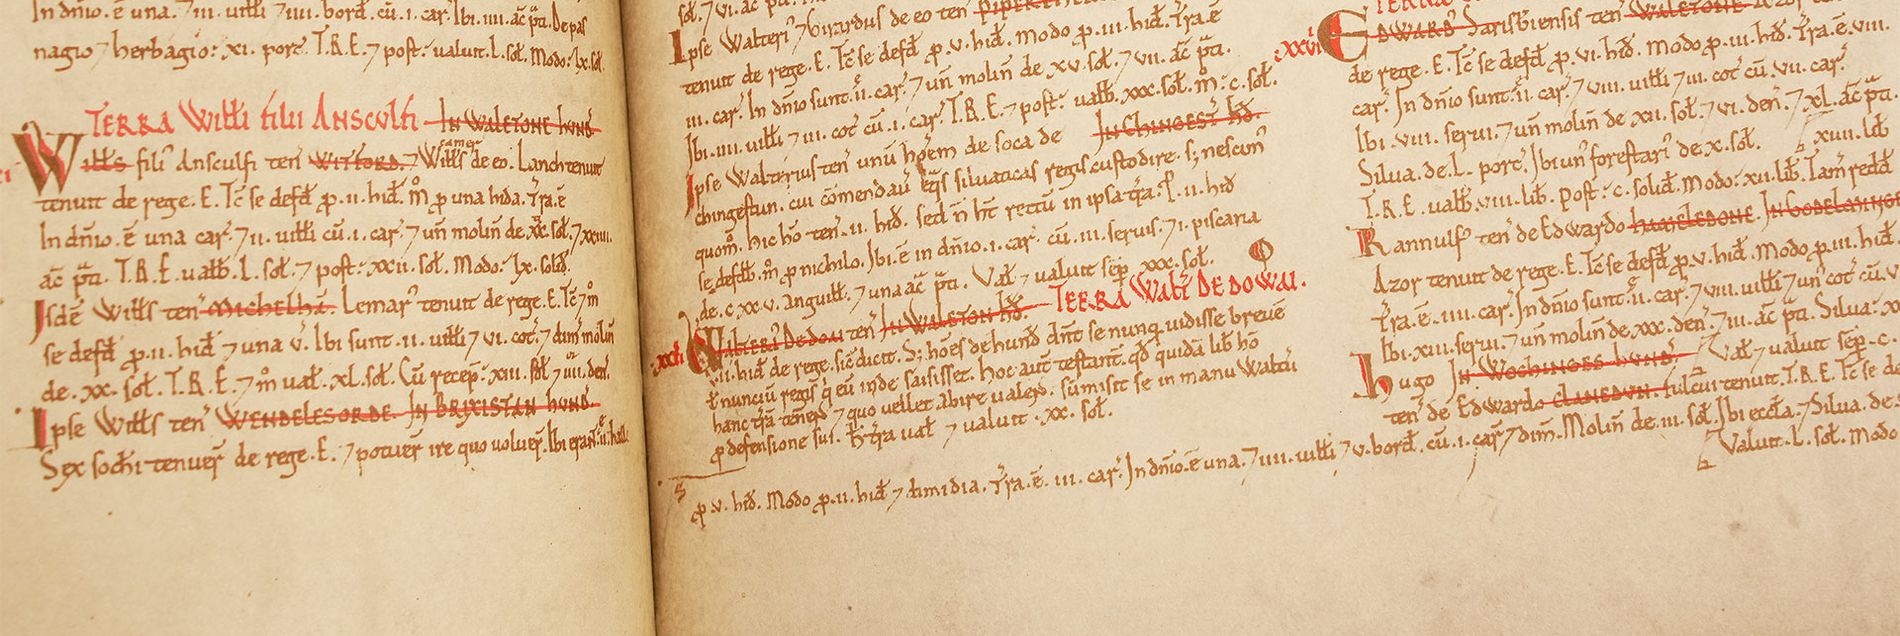 In dñio. ē una. ⁊ iii. uiƚƚi ⁊ iiii. borđ. cū. i. car̃. Ibi. iiii. ac̄ p̃ti. De pas
nagio ⁊ herbagio: xi. porc̃. T.R.E. ⁊ post: ualuit. L. soƚ. Modo: lx. soƚ.
TERRA Willi filii Ansculfi In Waletone hund̄
Wiƚƚs fili᷒ Ansculfi ten̄ Witford. ⁊ Wiƚƚs camer̃ de eo. Lanch tenuit
tenuit de rege. E. Tc̄ se defđ p̱ ii. hiđ. m̊ p̱ una hida. Tr̃a. ē
In dñio. ē una car̃. ⁊ ii. uiƚƚi cū. i. car̃. ⁊ uñ molin̄ de xx. soƚ. ⁊ xxiiii.
ac̄ p̃ti. T.R.E. ualƀ. L. soƚ. ⁊ post: xxii. soƚ. Modo: lx. soliđ.
Isdē Wiƚƚs ten̄ Michelhā. Lemar̃ tenuit de rege. E. Tc̄ ⁊ m̊
se defđ p̱ ii. hiđ ⁊ una v̄. Ibi sunt. ii. uiƚƚi ⁊ vi. cot̃. ⁊ dim̄ molin̄
de. xx. soƚ. T.R.E. ⁊ m̊ uaƚ. xL. soƚ. Cū recep̄: xiii. soƚ ⁊ iiii. den̄.
Ipse Wiƚƚs ten̄ Wendelesorde. In Brixistan hund̄.
Sex soch̄i tenuer̃ de rege. E. ⁊ potuer̃ ire quo voluer̃. Ibi eraɴ̃. ii. hallæ
soƚ. ⁊ vi. ac̄
Ipse Walteri᷒ ⁊ Girardus de eo ten̄
tenuit de rege. E. Tc̄ se defđ p̱ v. hiđ. modo p̱ iii. hiđ. Tr̃a. ē
iii. car̃. In dñio sunt. ii. car̃. ⁊ uñ molin̄ de xv. soƚ. ⁊ vii. ac̄ p̃ti.
Ibi. iiii. uiƚƚi ⁊ iii. cot̃ cū. i. car̃. T.R.E. ⁊ post: ualƀ. xxx. soƚ. m̊: c. soƚ.
Ipse Walterius ten̄ unū hōem de soca de In Chingest̃ hđ.
chingestun. cui cōmendau̅ eq̃s siluaticas regis custodire. s; nescim᷒
quom̊. hic hō ten̄. ii. hiđ. sed ñ h̃t rectū in ipsa tr̃a. p̱ ii. hiđ
se defdƀ. m̊ p̱ nichilo. Ibi. ē in dñio. i. car̃ cū. iii. seruis. ⁊ i. piscaria
de. c xx v. anguiƚƚ. ⁊ una ac̄ p̃ti. Vaƚ ⁊ ualuit sēp xxx. soƚ.
xxii. TERRA Walt̃ De Dowai.
Walteri᷒ De Dowai ten̄ In Waleton hđ.
ii. hiđ de rege. sic̄ dicit. S; hōes de hund̄ dn̄t se nunq̃ uidisse breuē
ł nunciū regis q̃ eū inde saisisset. Hoc aut̄ testant̃. qđ quidā liƀ hō
hanc tr̃ā tenen̄s ⁊ quo uellet abire ualen̄s. sūmisit se in manu Walt̃ii
p̱ defensione sui. h̄ tr̃a uaƚ ⁊ ualuit. xx. soƚ.
p̱ v. hiđ. Modo p̱ ii. hiđ ⁊ dimidia. Tr̃a. ē. iii. car̃. In dñio. ē una. ⁊ iiii. uiƚƚi ⁊ v. borđ. cū. i. car̃ ⁊ dim̄. Molin̄ de. iii. soƚ. Ibi æccƚa. ⁊ Silua. de.
xxvi. Edward᷒ Sarisƀiensis ten̄ Waletone
de rege. E. Tc̄ se defđ p̱ vi. hiđ. modo p̱ iii. hiđ. Tr̃a. ē. viii.
car̃. In dñio sunt. ii. car̃ ⁊ viii. uiƚƚi ⁊ iii. cot̃ cū. vii. car̃.
Ibi. viii. serui. ⁊ uñ molin̄ de xii. soƚ. ⁊ vi. den̄. ⁊ xL. ac̄ p̃ti.
Silua. de. L. porc̃. Ibi un᷒ forestari᷒ de x. soƚ. xiiii. liƀ
T.R.E. ualƀ. viii. liƀ. post: c. soliđ. Modo: xii. liƀ. Tam̄ redđ
Rannulf᷒ ten̄ de Edwardo Hameledone. In Godelminge
Azor tenuit de rege. E. Tc̄ se defđ p̱ v. hiđ. Modo p̱ iii. hiđ.
Tr̃a. ē. iiii. car̃. In dñio sunt. ii. car̃. ⁊ viii. uiƚƚi ⁊ uñ cot̃ cū. v.
Ibi. xiii. serui. ⁊ uñ molin̄ de. xxx. den̄. ⁊ iii. ac̄ p̃ti. Silua: x
Hugo In Wochinges hund̄. Vaƚ ⁊ ualuit sēp. c.
ten̄ de Edwardo Clanedun. Fulcui tenuit. T.R.E. Tc̄ se de
Valuit. L. soƚ. Modo